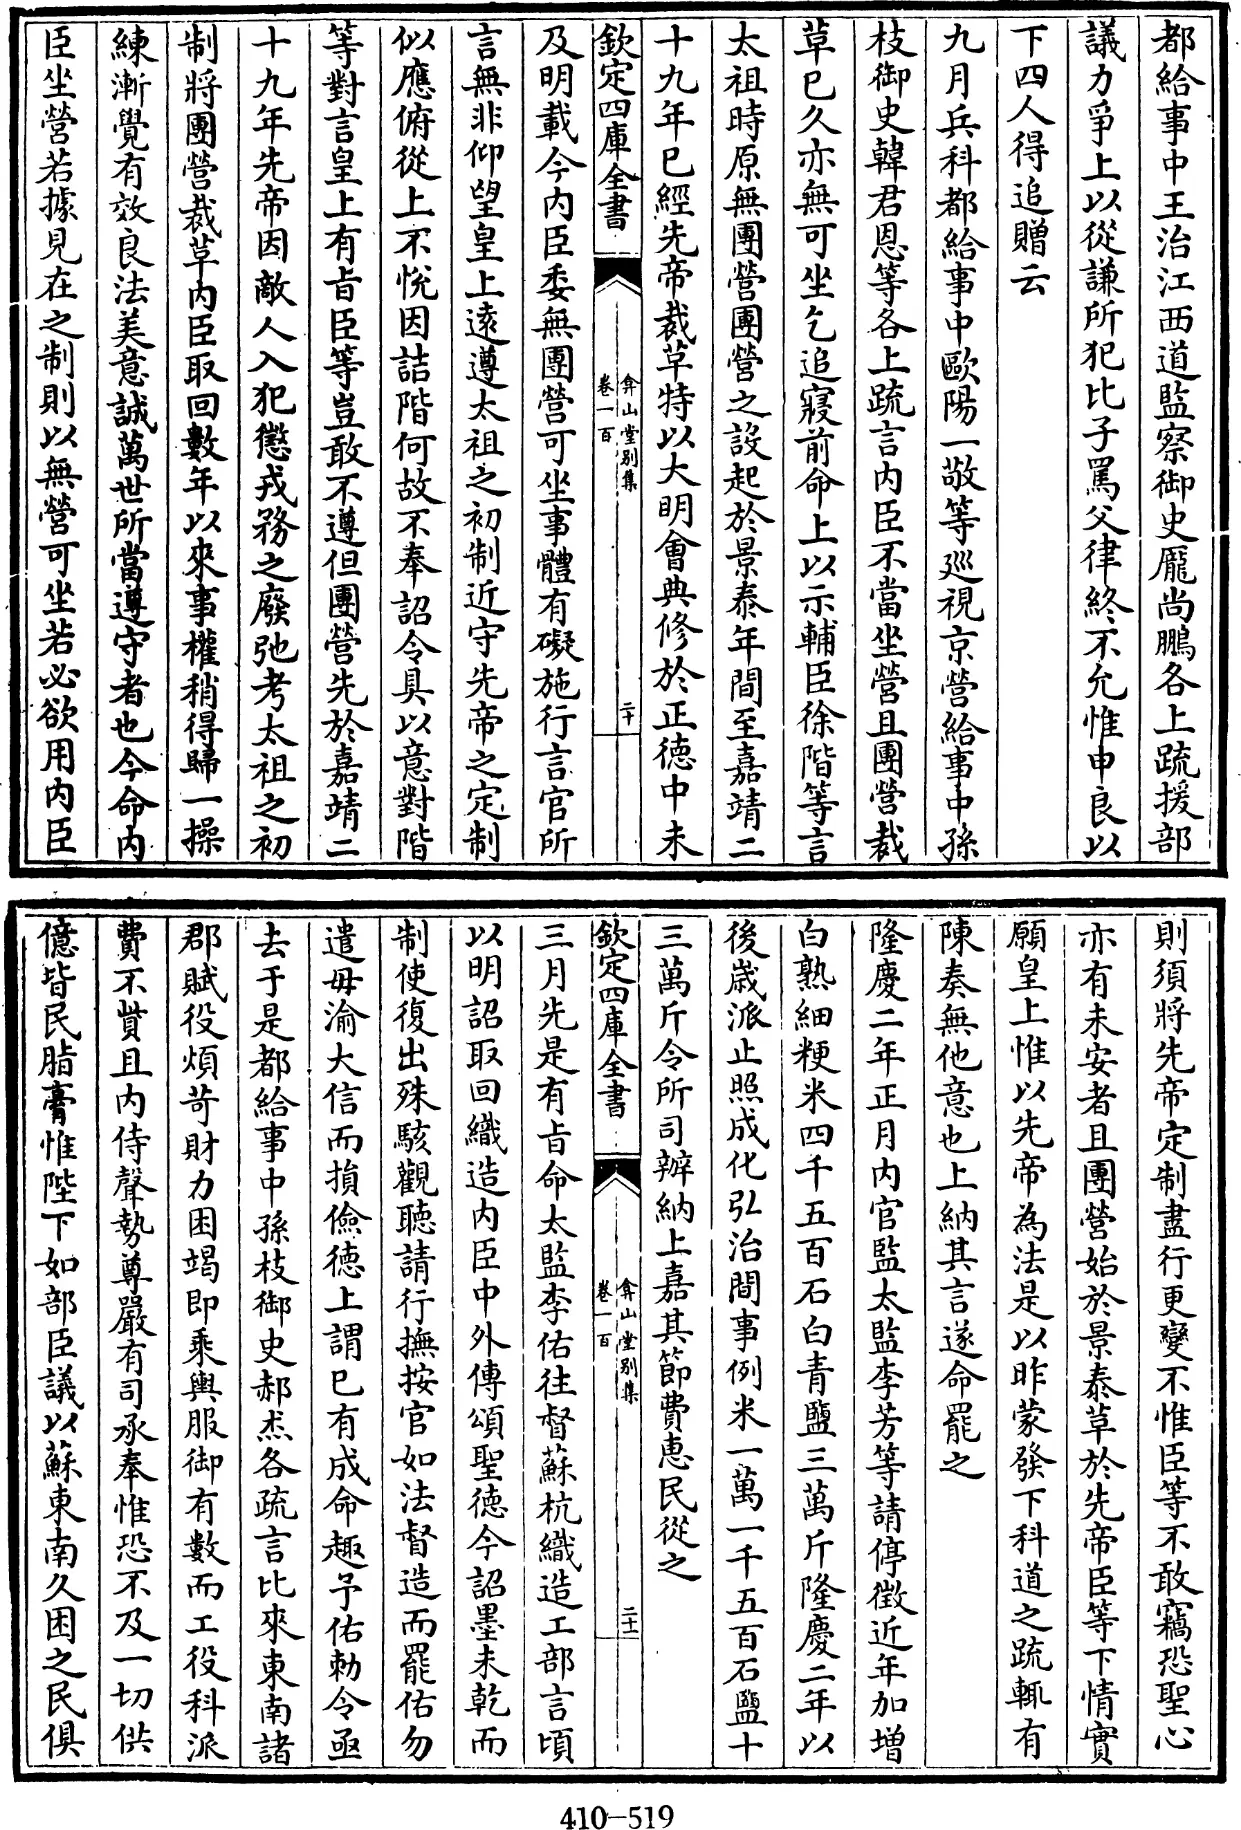 都給事中王治江西道監察御史龐尚鵬各上疏援部
議力爭上以從謙所犯比子罵父律終不允惟申良以
下四人得追贈云
九月兵科都給事中歐陽一敬等廵視京營給事中孫
枝御史韓君恩等各上疏言内臣不當坐營且團營裁
革已久亦無可坐乞追寢前命上以示輔臣徐階等言
太祖時原無團營團營之設起於景泰年間至嘉靖二
十九年已經先帝裁革特以大明會典修於正德中未
欽定四庫全書
弇山堂别集
卷一百
二十
及明載今内臣委無團營可坐事體有礙施行言官所
言無非仰望皇上遠遵太祖之初制近守先帝之定制
似應俯從上不悅因詰階何故不奉詔令具以意對階
等對言皇上有旨臣等豈敢不遵但團營先於嘉靖二
十九年先帝因敵人入犯懲戎務之廢弛考太祖之初
制將團營裁革内臣取回數年以來事權稍得歸一操
練漸覺有效良法美意誠萬世所當遵守者也今命内
臣坐營若據見在之制則以無營可坐若必欲用内臣
則須將先帝定制盡行更變不惟臣等不敢竊恐聖心
亦有未安者且團營始於景泰革於先帝臣等下情實
願皇上惟以先帝為法是以昨蒙發下科道之疏輒有
陳奏無他意也上納其言遂命罷之
隆慶二年正月内官監太監李芳等請停徵近年加增
白熟細粳米四千五百石白青鹽三萬斤隆慶二年以
後歲派止照成化弘治間事例米一萬一千五百石鹽十
三萬斤令所司辦納上嘉其節費惠民從之
欽定四庫全書
弇山堂别集
卷一百
二十一
三月先是有旨命太監李佑往督蘇杭織造工部言頃
以明詔取回織造内臣中外傳頌聖德今詔墨未乾而
制使復出殊駭觀聽請行撫按官如法督造而罷佑勿
遣毋渝大信而損儉德上謂已有成命趣予佑勅令亟
去于是都給事中孫枝御史郝杰各疏言比來東南諸
郡賦役煩苛財力困竭即乘輿服御有數而工役科派
費不貲且内侍聲勢尊嚴有司承奉惟恐不及一切供
億皆民脂膏惟陛下如部臣議以蘇東南久困之民俱
410-519